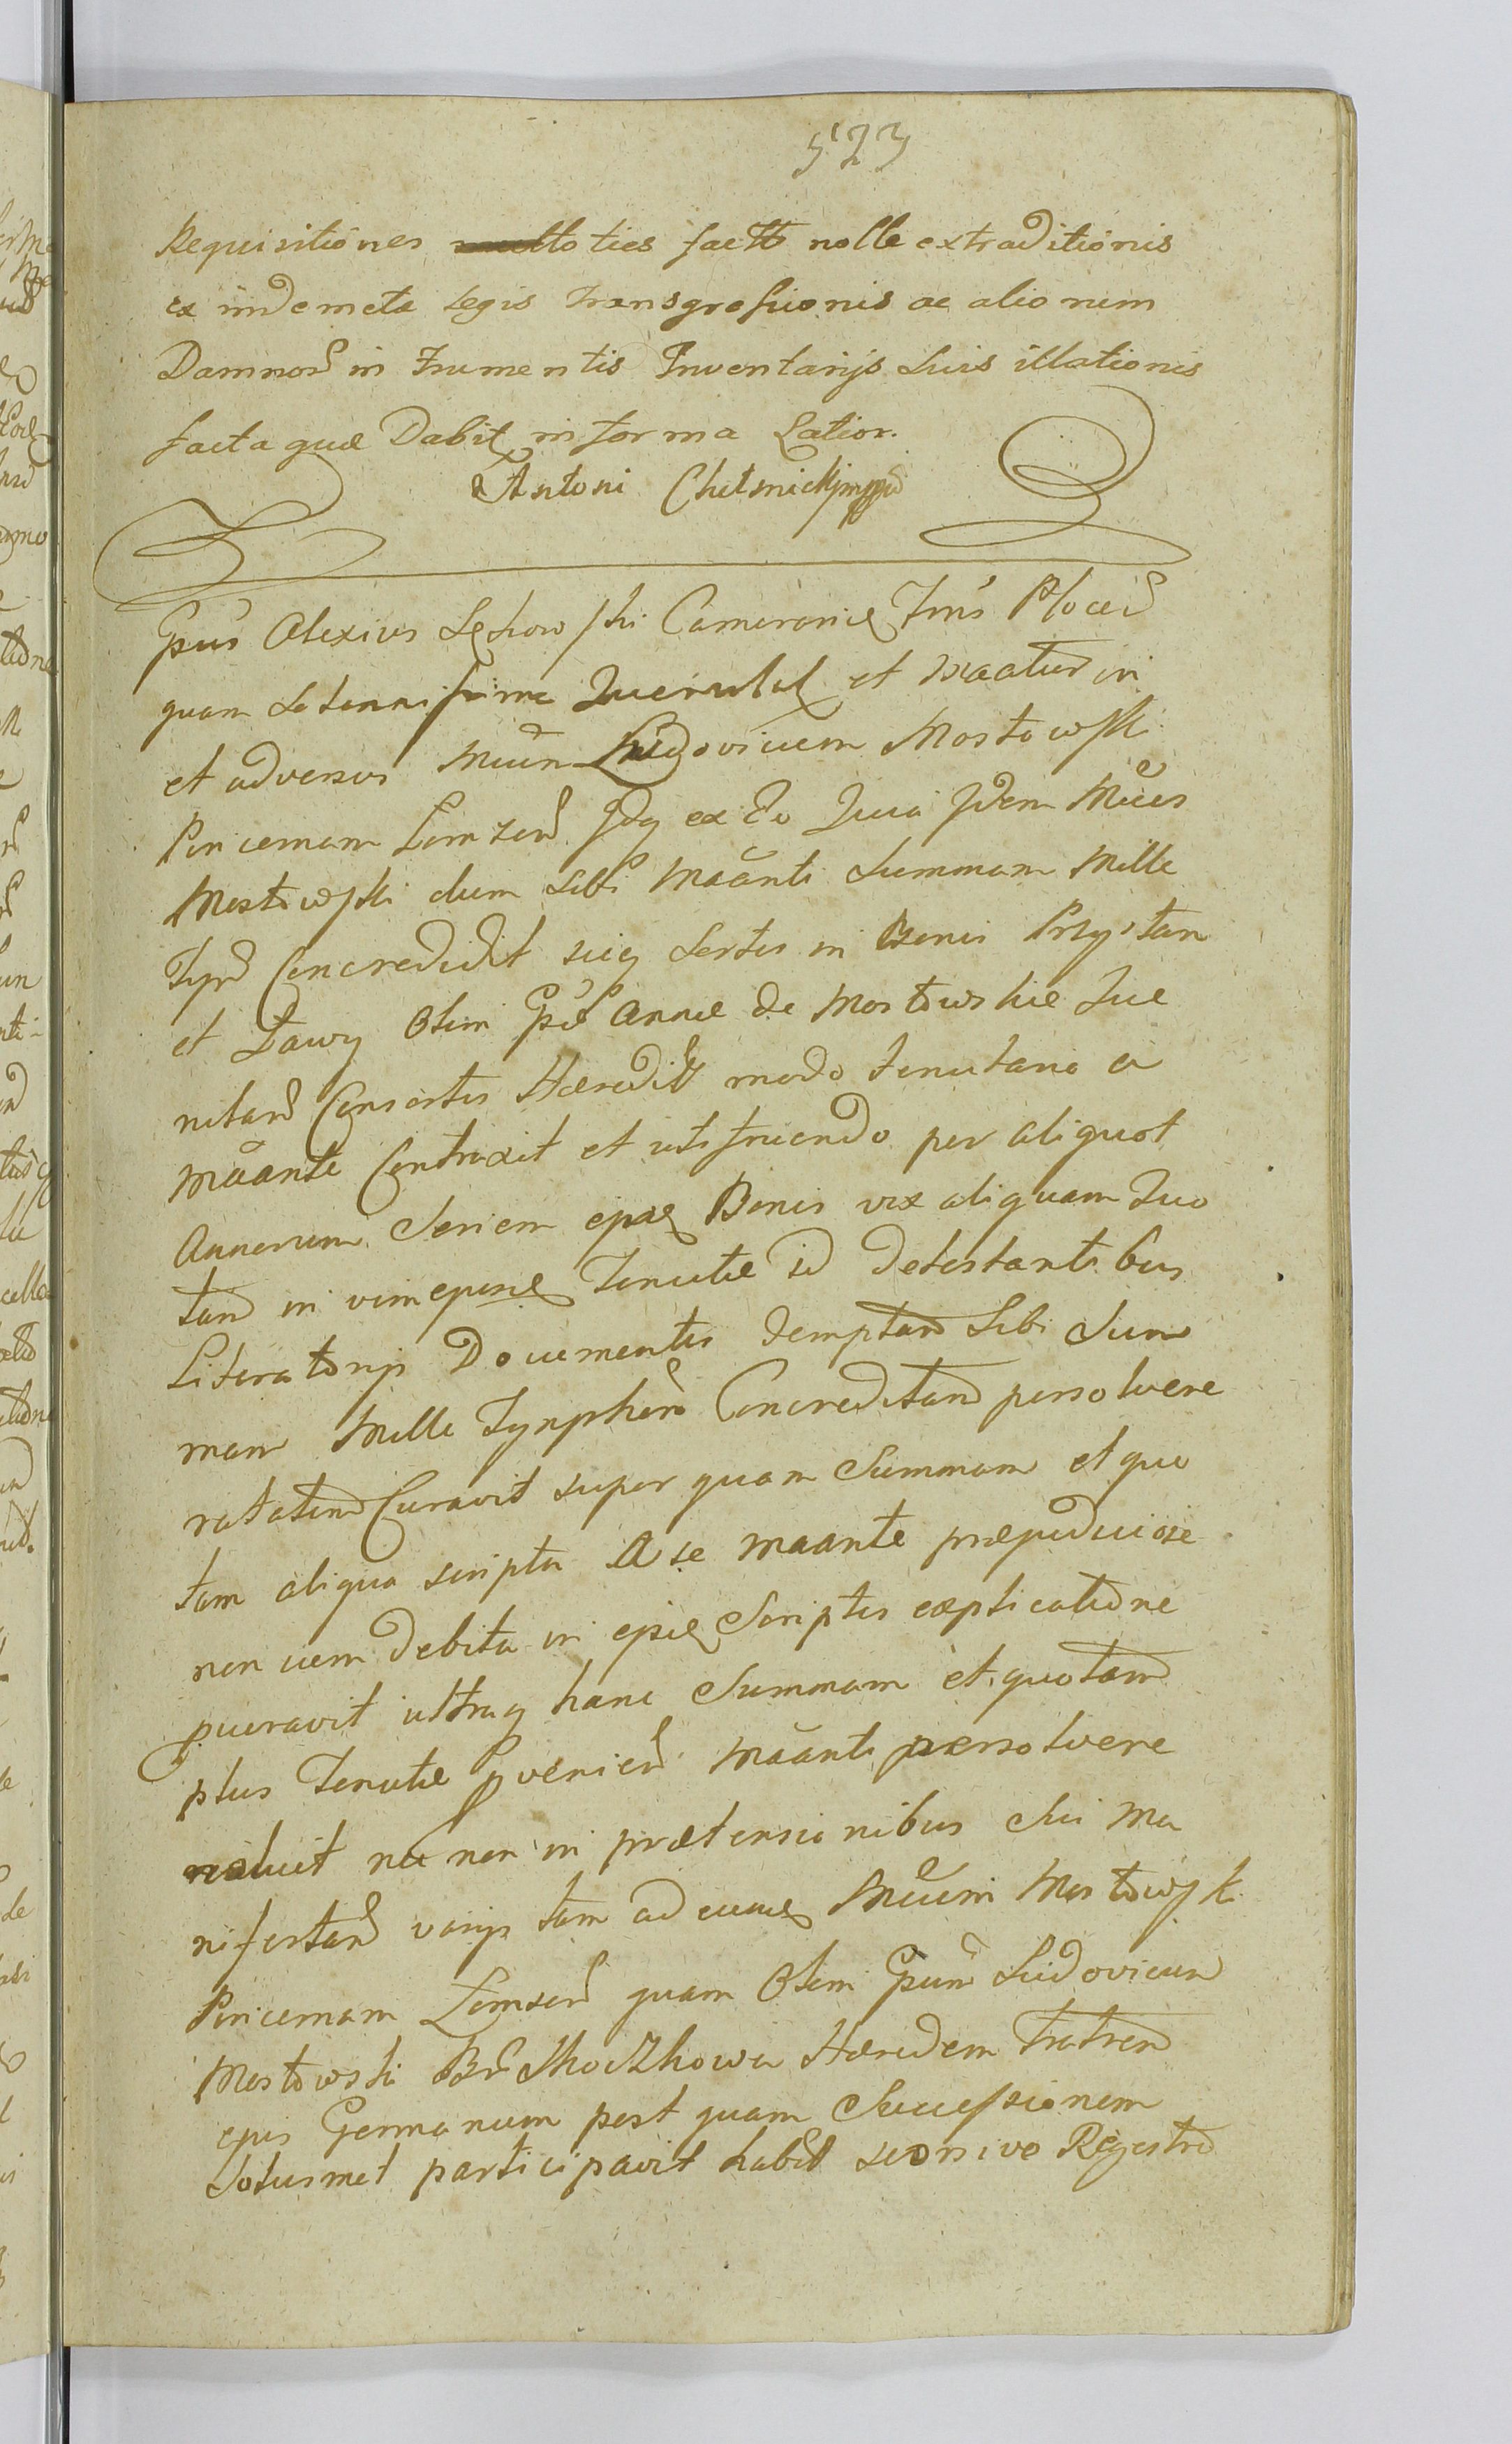 523
Requisitiones multoties factt nolle extraditionis
ex inde meta Legis transgressionis ac alionem
Damnor in Frumentis Inventarijs Suis illationis
facta quæ Dabit in forma Latior.
Antoni Chetmicki mppd
Gsus Alexius Lehowski Camerarius Trris Plocen
quam Solennissime Querulat et Maatur in
et adversus Mcum Ludovicum Mostowski
Pincernam Lomzen Idq ex Eo Quia Idem Mcus
Mostowski dum Sibi Maanti Summam Mille
Typh Concredidit suiq Sortis in Bonis Przystan
et Ławy Olim Gsæ Annæ de Mostowskie
Consortis Hæredit modo tenutario a
Maante Contraxit et utifruendo per aliquot
Annorum Seriem epsq Bonis vix aliquam Quo
tam in vim Tenutæ id Detestantibus
Literatorijs Documentis demptam Sibi Sum
mam Mille Tynphor Concreditam persolvere
ratatim Curavit super quam Summam et quo
tam aliqua scripta A se Maante præjudiciose
non cum debita in Scriptis explicatione
puravit ultraq hanc Summam et quotam
plus Tenutæ pvenien Maanti persolvere
noluit nec non in prætensionibus Sui Ma
nifestan varijs tam ad eunde Mcum Mostowski
Pincernam Lomzen quam Olim Gsum Ludovicum
Mostowski Br Hæredem Fratrem
ejus Germanum post quam Successionem
Solusmet participavit habet seorsivo Regestro